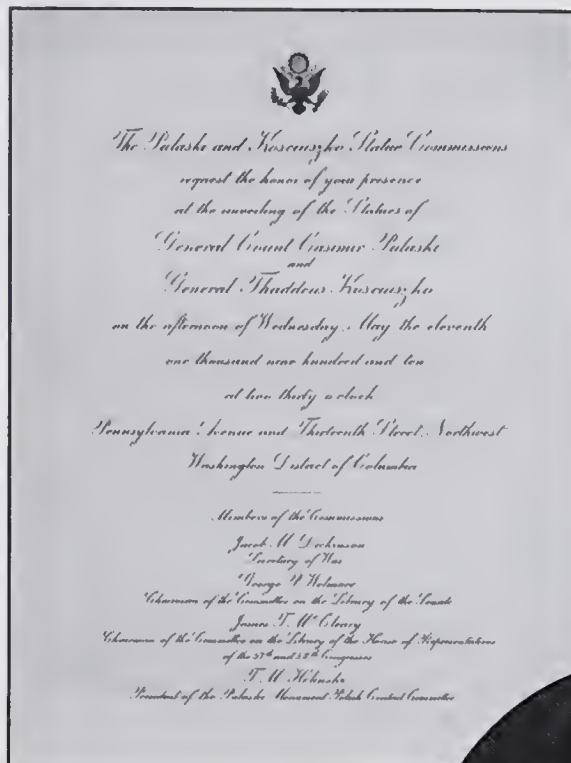 The Pulaski and Kosciuszko Statue Commissions
request the honor of your presence
at the unveiling of the Statues of
General Count Casimir Pulaski
and
General Thaddeus Kosciuszko
on the afternoon of Wednesday, May the eleventh
one thousand nine hundred and ten
at two thirty o'clock
Pennsylvania Avenue and Thirteenth Street, Northwest
Washington District of Columbia
Members of the Commissions
Jacob M Dickinson
Secretary of War
George P Wetmore
Chairman of the Committee on the Library of the Senate
James T. McCleary
Chairman of the Committee on the Library of the House of Representatives
of the 57th and 58th Congresses
T. M. Helinski
President of the Pulaski Monument Polish Central Committee